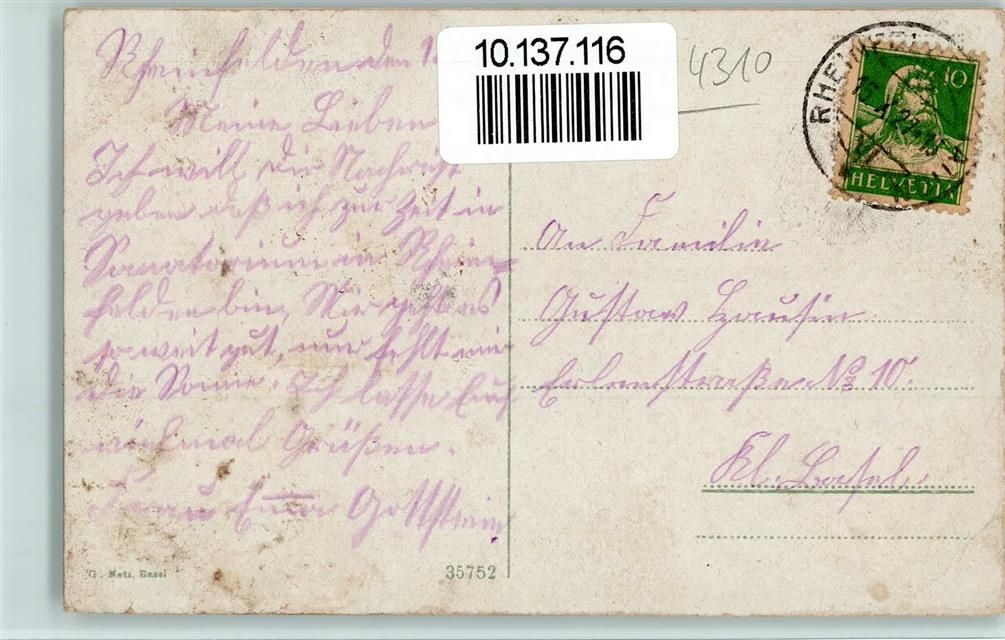 10.137.116
4310
Rheinfelden den
Meine Lieben
Ich will die Nachricht
geben daß ich zur Zeit in
Sanatorium in Rhein-
felden bin, Mir geht es
so weit gut, nur fehlt mir
die Sonne. Ich lasse Euch
vielmal Grüßen.
Frau Emma Gottstein
G. Metz, Basel
35752
RHEIN
10
HELVETIA
An Familie
Gustav Hausin
Erlenstraße No 10.
Kl. Basel.